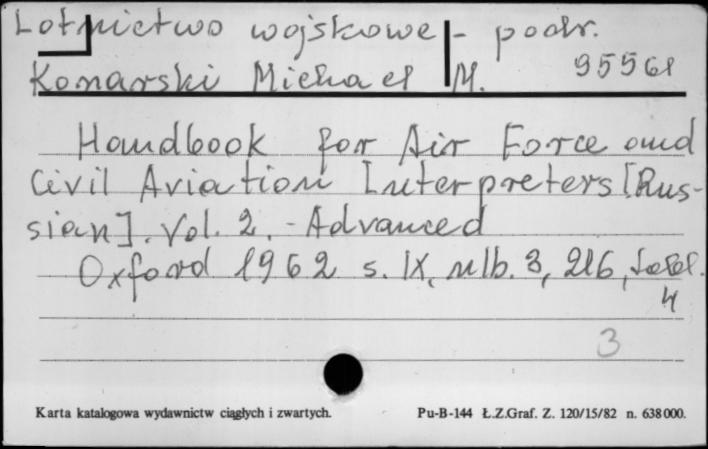 Lotnictwo wojskowe - podr.
Konarski Michael M. 95561
Handbook for Air Force and
Civil Aviation Interpreters [Rus-
sian]. Vol. 2. - Advanced
Oxford 1962 s. IX, nlb. 3, 216, tabl.
4
3
Karta katalogowa wydawnictw ciągłych i zwartych. Pu-B-144 Ł.Z.Graf. Z. 120/15/82 n. 638000.